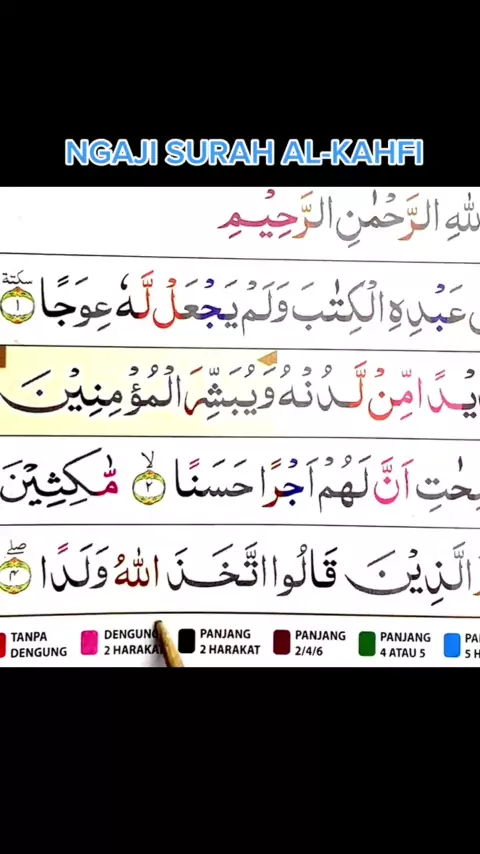 NGAJI SURAH AL-KAHFI
الرَّحْمٰنِ الرَّحِيْمِ
عَبْدِهِ الْكِتٰبَ وَلَمْ يَجْعَلْ لَّهٗ عِوَجًا سكتة ١
مِّنْ لَّدُنْهُ وَيُبَشِّرَ الْمُؤْمِنِيْنَ
اَنَّ لَهُمْ اَجْرًا حَسَنًا ۙ ٢ مّٰكِثِيْنَ
الَّذِيْنَ قَالُوا اتَّخَذَ اللّٰهُ وَلَدًا ۖ ٤
TANPA DENGUNG DENGUNG 2 HARAKAT PANJANG 2 HARAKAT PANJANG 2/4/6 PANJANG 4 ATAU 5